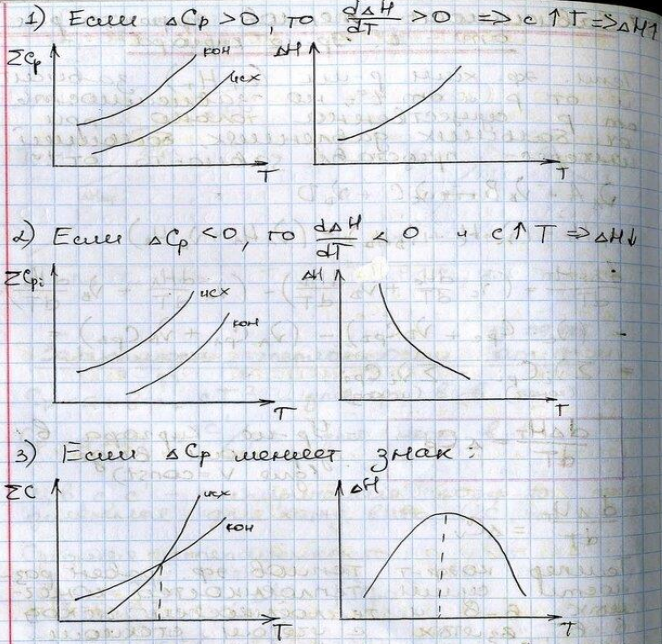 1) Если ΔCp > 0, то dΔH/dT > 0 => с ↑ T => ΔH↑
ΣCp кон исх T
ΔH T
2) Если ΔCp < 0, то dΔH/dT < 0 и с ↑ T => ΔH↓
ΣCpi исх кон T
ΔH T
3) Если ΔCp меняет знак:
ΣC исх кон T
ΔH T